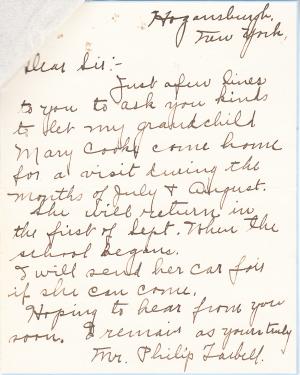 Hogansburgh,
New York.
Dear Sir:-
Just a few lines
to you to ask you kinds
to let my grandchild
Mary Cook come home
for a visit during the
months of July & August.
She will return in
the first of Sept. When the
school begans.
I will send her car fair
if she can come.
Hoping to hear from you
soon. I remain as yours truly
Mr. Philip Tarbell.